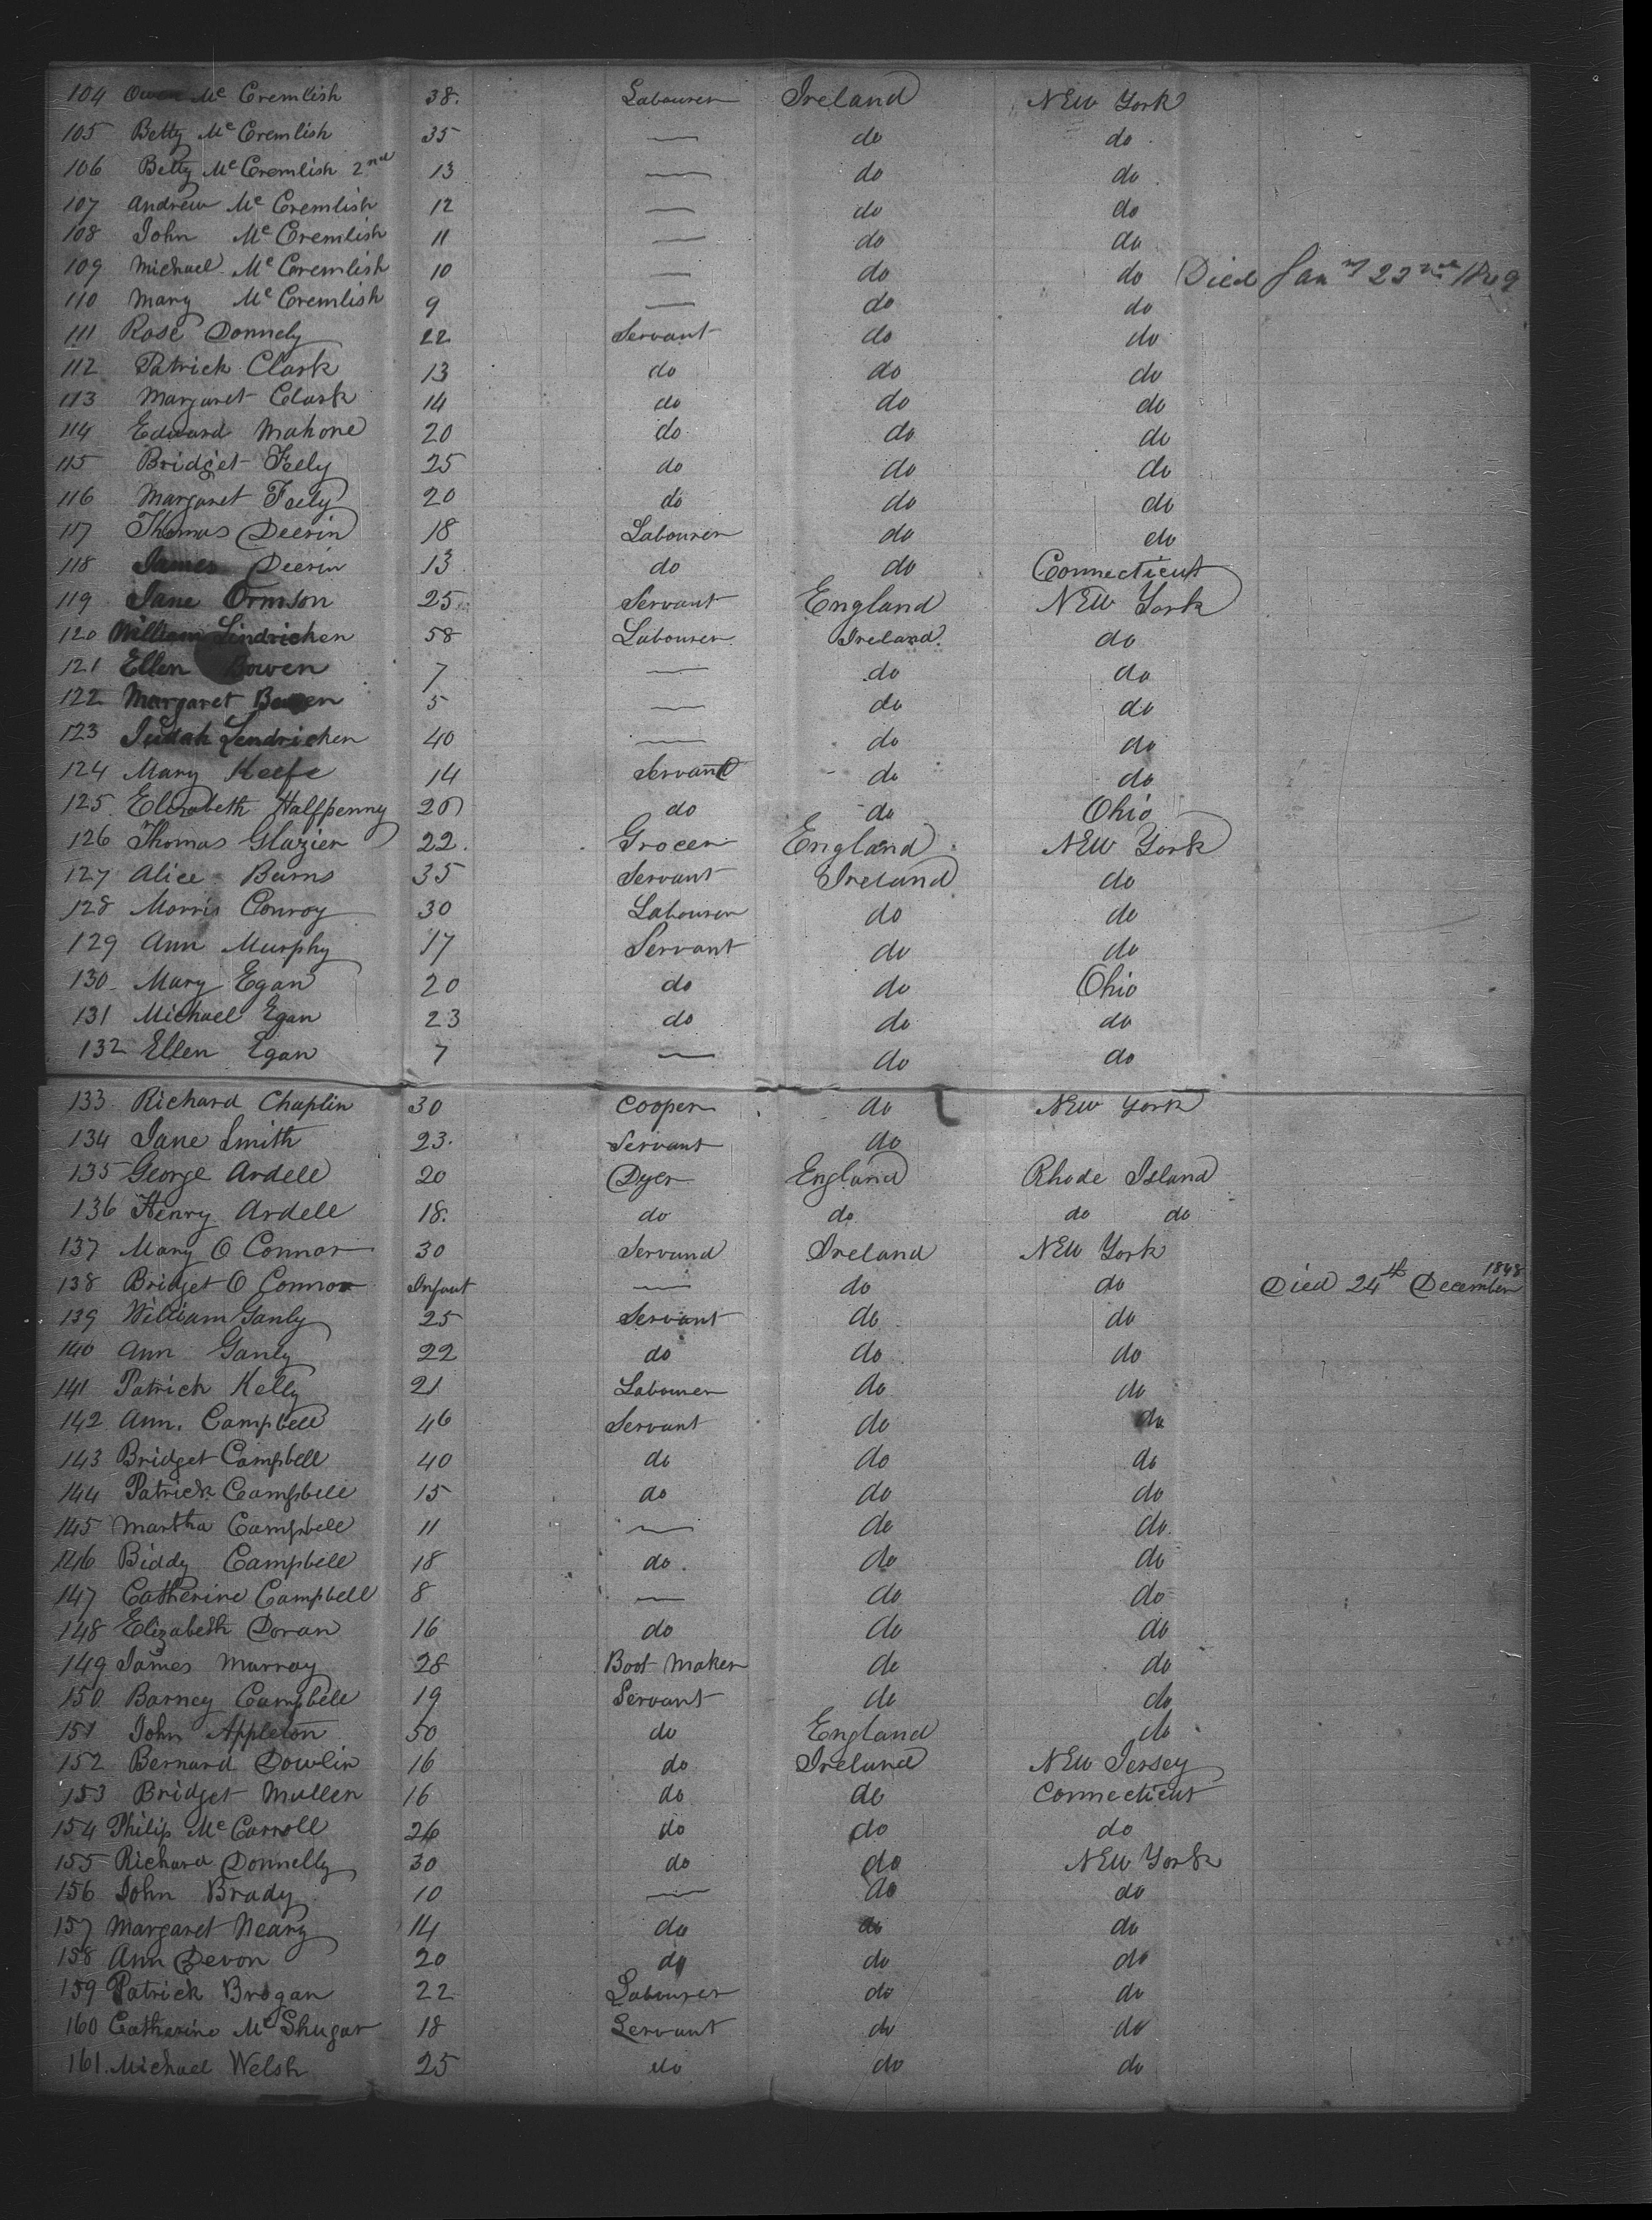 104 Owen Mc Cremlish 38. Labourer Ireland New York
105 Betty Mc Cremlish 35 — do do
106 Betty Mc Cremlish 2nd 13 — do do
107 Andrew Mc Cremlish 12 — do do
108 John Mc Cremlish 11 — do do
109 Michael Mc Cremlish 10 — do do Died Jany 22nd 1849
110 Mary Mc Cremlish 9 — do do
111 Rose Donnely 22 Servant do do
112 Patrick Clark 13 do do do
113 Margaret Clark 14 do do do
114 Edward Mahone 20 do do do
115 Bridget Feely 25 do do do
116 Margaret Feely 20 do do do
117 Thomas Deerin 18 Labourer do do
118 James Deerin 13 do do Connecticut
119 Jane Ormson 25 Servant England New York
120 William Lindricken 58 Labourer Ireland do
121 Ellen Bowen 7 — do do
122 Margaret Bowen 5 — do do
123 Judah Lendricken 40 — do do
124 Mary Keefe 14 Servant do do
125 Elizabeth Halfpenny 20 do do Ohio
126 Thomas Glazier 22. Grocer England New York
127 Alice Burns 35 Servant Ireland do
128 Morris Conroy 30 Labourer do do
129 Ann Murphy 17 Servant do do
130 Mary Egan 20 do do Ohio
131 Michael Egan 23 do do do
132 Ellen Egan 7 — do do
133 Richard Chaplin 30 Cooper do New York
134 Jane Smith 23. Servant do
135 George Ardell 20 Dyer England Rhode Island
136 Henry Ardell 18. do do do do
137 Mary O Connor 30 Servand Ireland New York
138 Bridget O Connor Infant — do do Died 24th December 1848
139 William Ganly 25 Servant do do
140 Ann Ganly 22 do do do
141 Patrick Kelly 21 Labourer do do
142 Ann. Campbell 46 Servant do do
143 Bridget Campbell 40 do do do
144 Patrick Campbell 15 do do do
145 Martha Campbell 11 — do do
146 Biddy Campbell 18 do do do
147 Catherine Campbell 8 — do do
148 Elizabeth Doran 16 do do do
149 James Murray 28 Boot Maker do do
150 Barney Campbell 19 Servant do do
151 John Appleton 50 do England do
152 Bernard Dowlin 16 do Ireland New Jersey
153 Bridget Mullen 16 do do Connecticut
154 Philip Mc Carroll 26 do do do
155 Richard Donnelly 30 do do New York
156 John Brady 10 — do do
157 Margaret Neary 14 do do do
158 Ann Devon 20 do do do
159 Patrick Brogan 22 Labourer do do
160 Catharine Mc Shugar 18 Servant do do
161. Michael Welsh 25 do do do